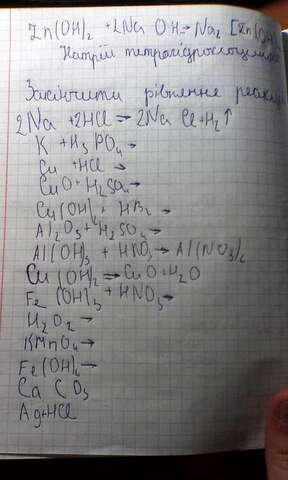 Zn(OH)₂ + 2Na OH → Na₂ [Zn(OH)
Натрій тетрагідроксоцинкат
Закінчити рівняння реакцій
2Na + 2HCl → 2Na Cl + H₂↑
K + H₃ PO₄ →
Cu + HCl →
CuO + H₂SO₄ →
Cu(OH)₂ + HBr →
Al₂O₃ + H₂SO₄ →
Al(OH)₃ + HNO₃ → Al(NO₃)₂
Cu (OH)₂ = CuO + H₂O
Fe (OH)₃ + HNO₃ →
H₂O₂ →
KMnO₄ →
Fe(OH)₂ →
Ca CO₃
Ag+HCl